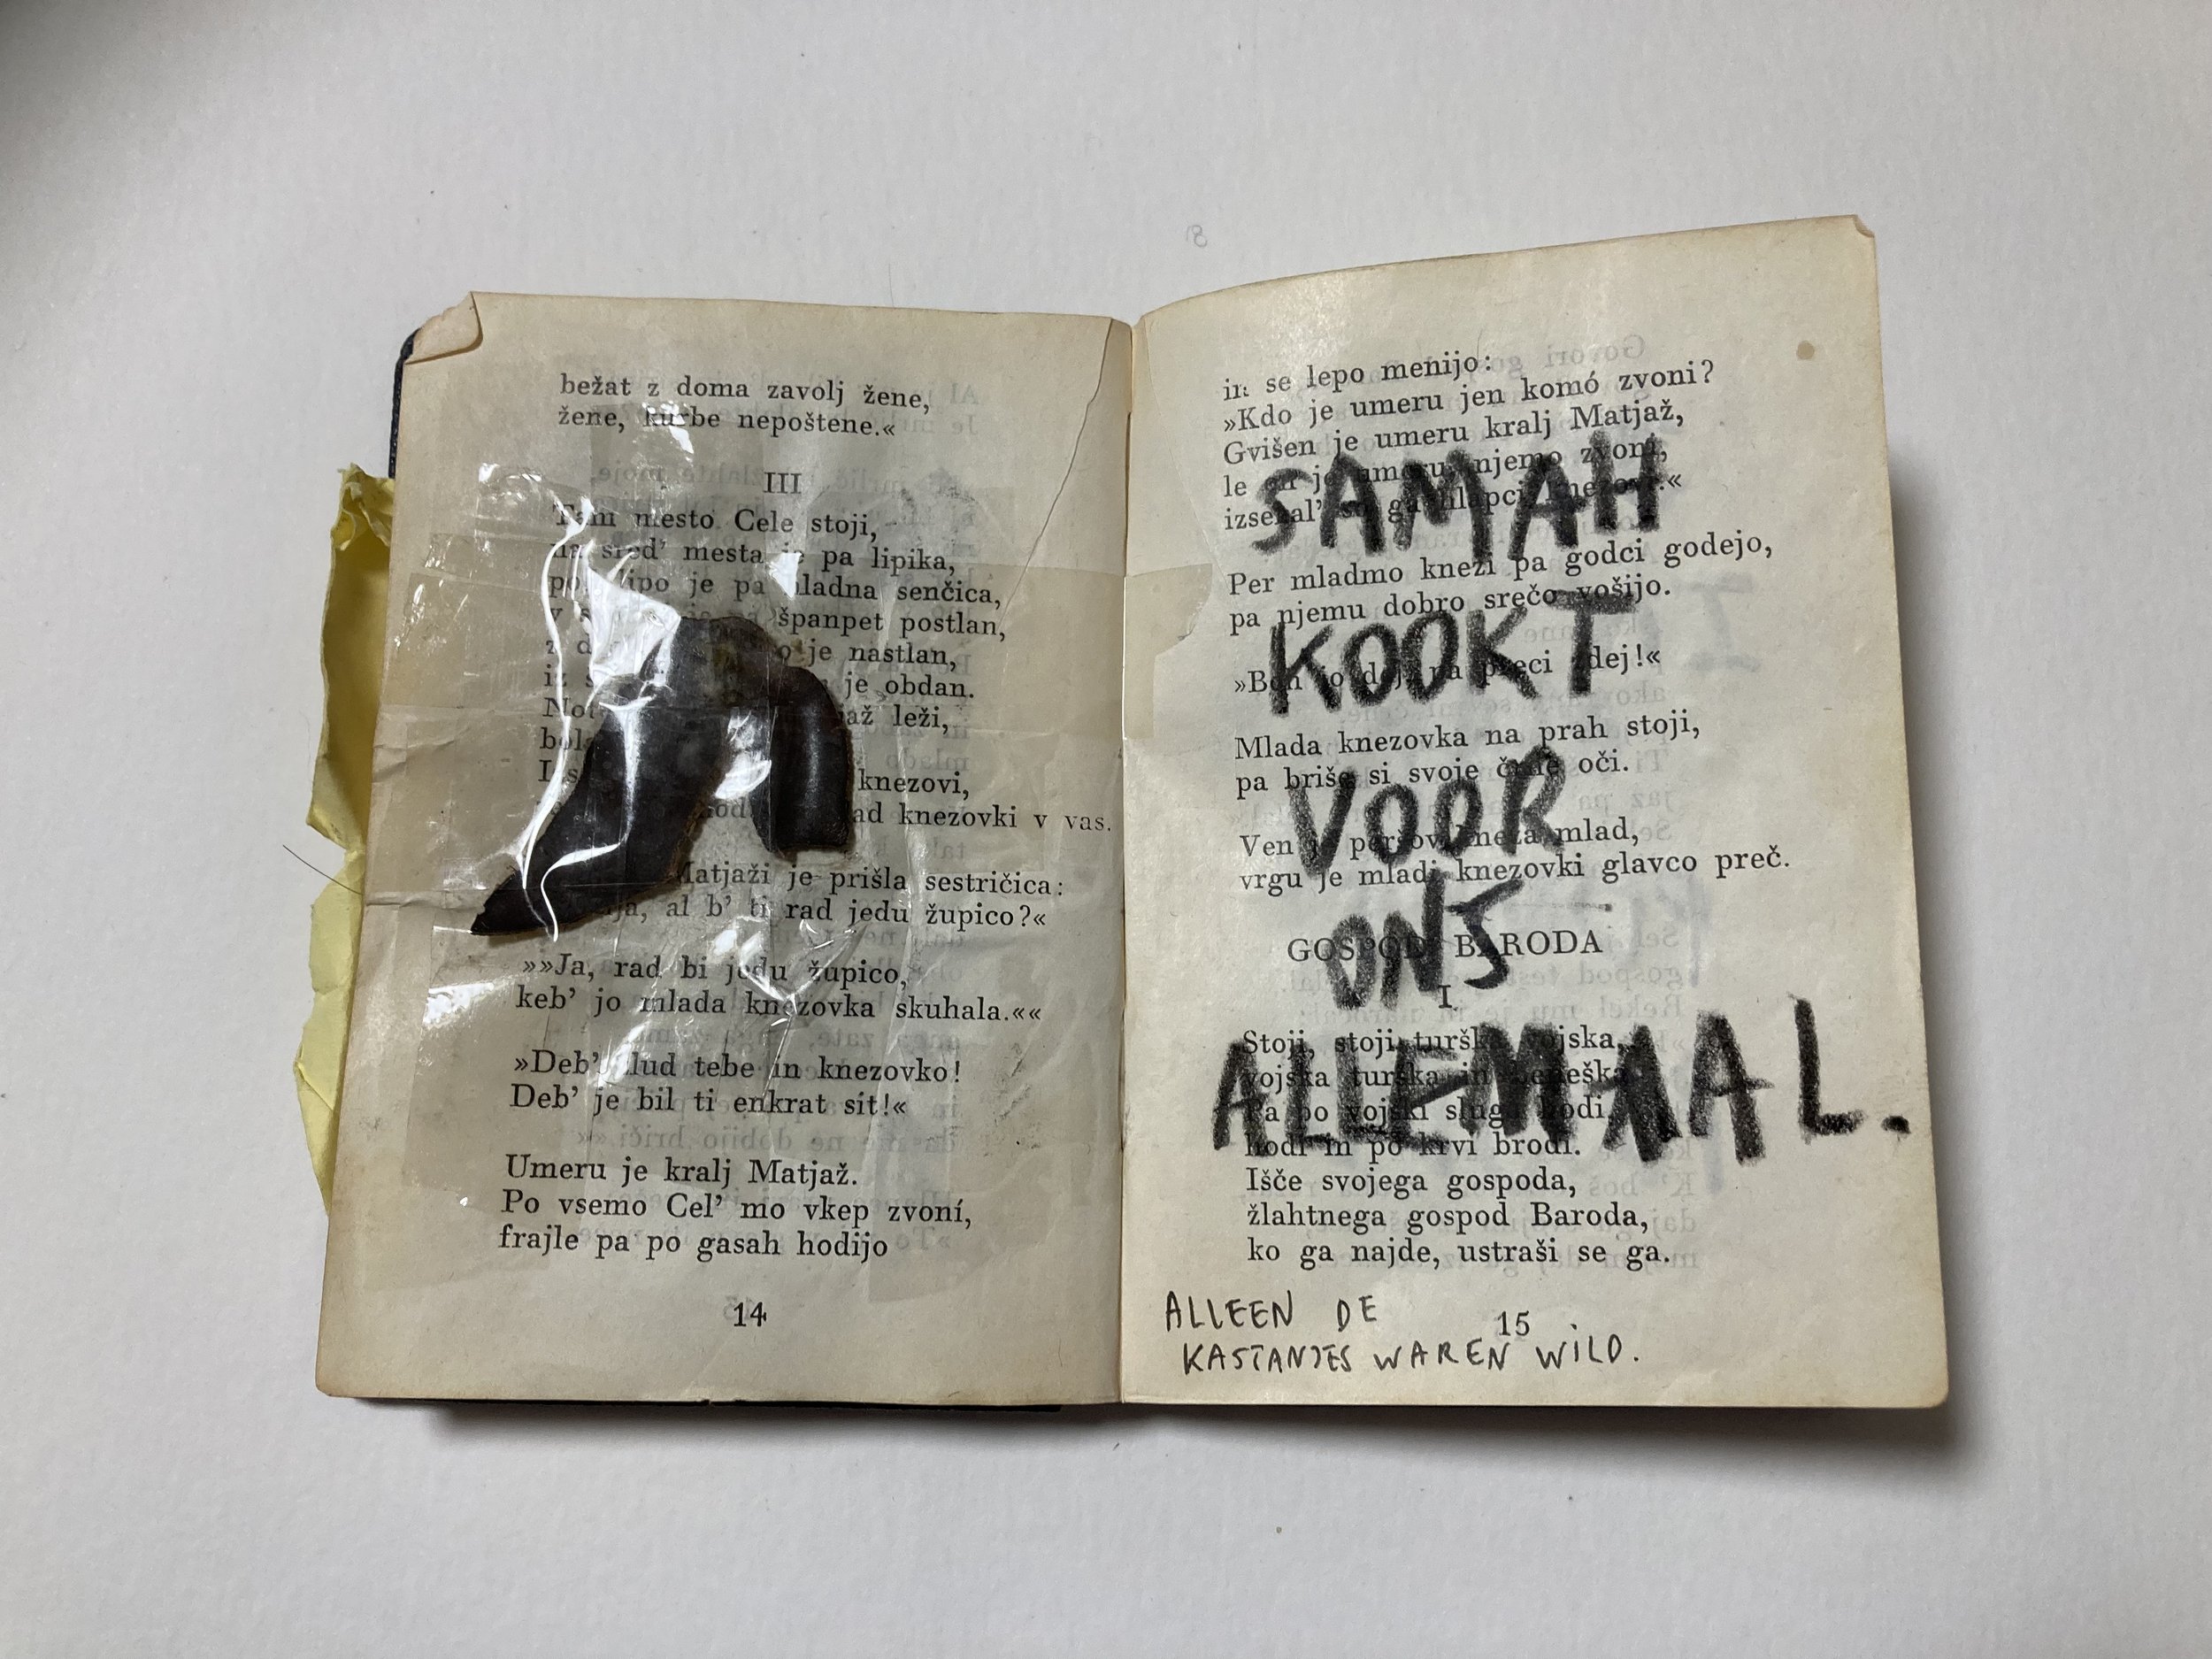 bežat z doma zavolj žene,
žene, kurbe nepoštene.«
III
Tam mesto Cele stoji,
na sred' mesta je pa lipika,
pod lipo je pa hladna senčica,
v španpet postlan,
je nastlan,
je obdan.
leži,
knezovi,
knezovki v vas.
Matjaži je prišla sestričica:
al b' ti rad jedu župico?«
»»Ja, rad bi jedu župico,
keb' jo mlada knezovka skuhala.««
»Deb' lud tebe in knezovko!
Deb' je bil ti enkrat sit!«
Umeru je kralj Matjaž.
Po vsemo Cel' mo vkep zvoní,
frajle pa po gasah hodijo
14
in se lepo menijo:
»Kdo je umeru jen komó zvoni?
Gvišen je umeru kralj Matjaž,
le on je umeru, njemo zvoni,
Per mladmo knezi pa godci godejo,
pa njemu dobro srečo vošijo.
Mlada knezovka na prah stoji,
pa briše si svoje črne oči.
Ven je peršov kneza mlad,
vrgu je mladi knezovki glavco preč.
GOSPOD BARODA
I
Stoji, stoji turška vojska,
vojska turška in beneška.
Pa po vojski sluga hodi,
hodi in po krvi brodi.
Išče svojega gospoda,
žlahtnega gospod Baroda,
ko ga najde, ustraši se ga.
15
SAMAH
KOOKT
VOOR
ONS
ALLEMAAL.
ALLEEN DE
KASTANJES WAREN WILD.